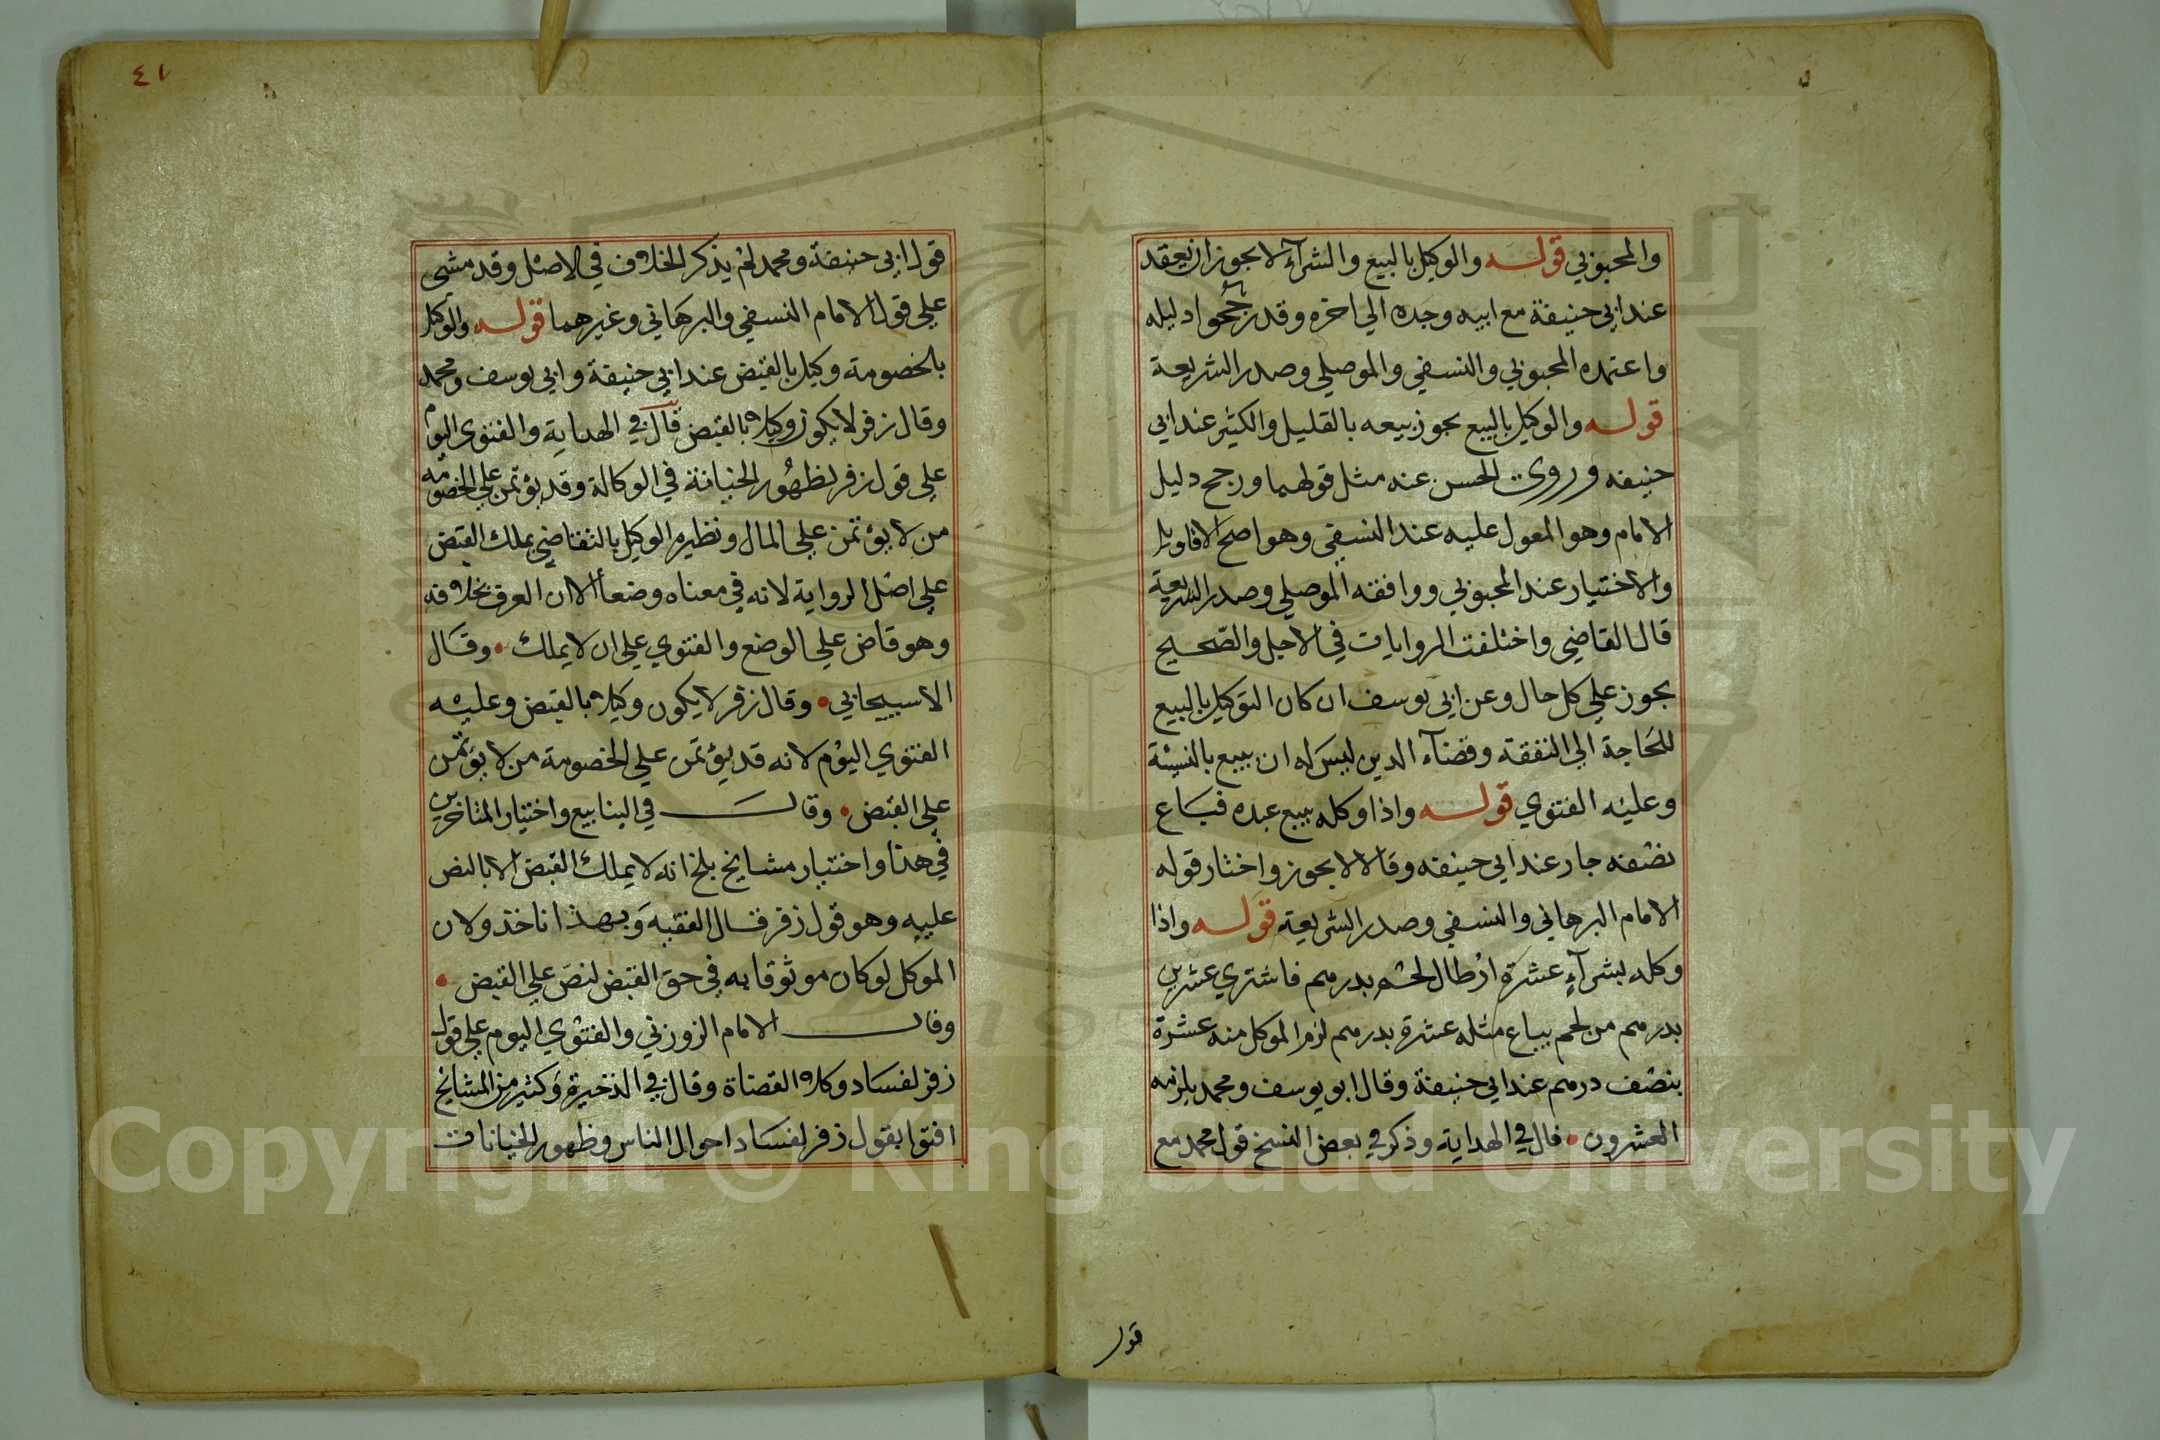 والمحبوبي قوله والوكيل بالبيع والشرآء لا يجوز ان يعقد
عند ابي حنيفة مع ابيه وجده الي اخره وقد رجحوا دليله
واعتمده المحبوبي والنسفي والموصلي وصدر الشريعة
قوله والوكيل بالبيع يجوز بيعه بالقليل والكثير عند ابي
حنيفه وروي الحسن عنه مثل قولهما ورجح دليل
الامام وهو المعول عليه عند النسفي وهو اصح الاقاويل
والاختيار عند المحبوبي ووافقه الموصلي وصدر الشريعة
قال القاضي واختلفت الروايات في الاجل والصّحيح
يجوز علي كل حال وعن ابي يوسف ان كان التوكيل بالبيع
للحَاجة الي النفقة وقضآء الدين ليسَ له ان يبيع بالنسيئة
وعليْه الفتوي قوله واذا وكله ببيع عبده فبَاع
نصْفه جاز عند ابي حنيفه وقالا لا يجوز واختار قوله
الامام البرهاني والنسفي وصدر الشريعة قوله واذا
وكله بشرآءِ عشرة ارْطال لحم بدرهم فاشتري عشرين
بدرهم من لحم يباع مثله عشرة بدرهم لزم الموكل منه عشرة
بنصْف درهم عند ابي حنيفة وقال ابو يوسف ومحمد يلزمه
العشرون • قال في الهداية وذكر في بعض النسخ قول محمد مع
قول
٤١
قول ابي حنيفة ومحمد لمْ يذكر الخلاف في الاصْل وقد مشي
علي قول الامام النسفي والبرهاني وغيرهما قوله والوكيل
بالخصومة وكيل بالقبض عند ابي حنيفة وابي يوسف ومحمد
وقال زفر لا يكون وكيلا بالقبض قال في الهداية والفتوي اليوم
علي قول زفر لظهُور الخيانة في الوكالة وقد يؤتمن علي الخصومه
من لا يؤتمن علي المال ونظيره الوكيل بالتقاضي يملك القبض
علي اصْل الرواية لانه في معناه وضعاً الا ان العرف بخلافه
وهو قاض علي الوضع والفتوي علي ان لا يملك • وقال
الاسبيجابي • وقال زفر لا يكون وكيلا بالقبض وعليْه
الفتوي اليوْم لانه قد يؤتمن علي الخصومة من لا يؤتمن
علي القبض • وقال في الينابيع واختيار المتاخرين
في هذا واختيار مشايخ بلخ انه لا يملك القبض الا بالنص
عليه وهو قول زفر قال الفقيه وَبهذا ناخذ ولان
الموكل لو كان موثوقا به في حق القبض لنصّ علي القبض •
وقال الامام الزوزني والفتوي اليوم علي قول
زفر لفسَاد وكلاء القضاة وقال في الذخيرة وكثير من المشايخ
افتوا بقول زفر لفسَاد احوال الناس وظهور الخيانات
Copyright © King Saud University